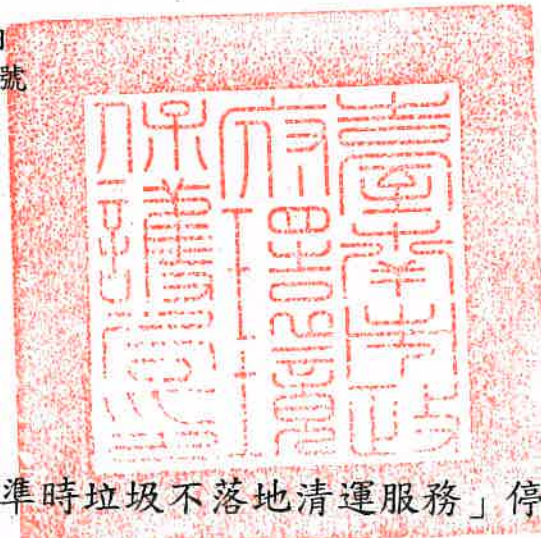 號
臺南市政
府環境
保護局印
準時垃圾不落地清運服務」停